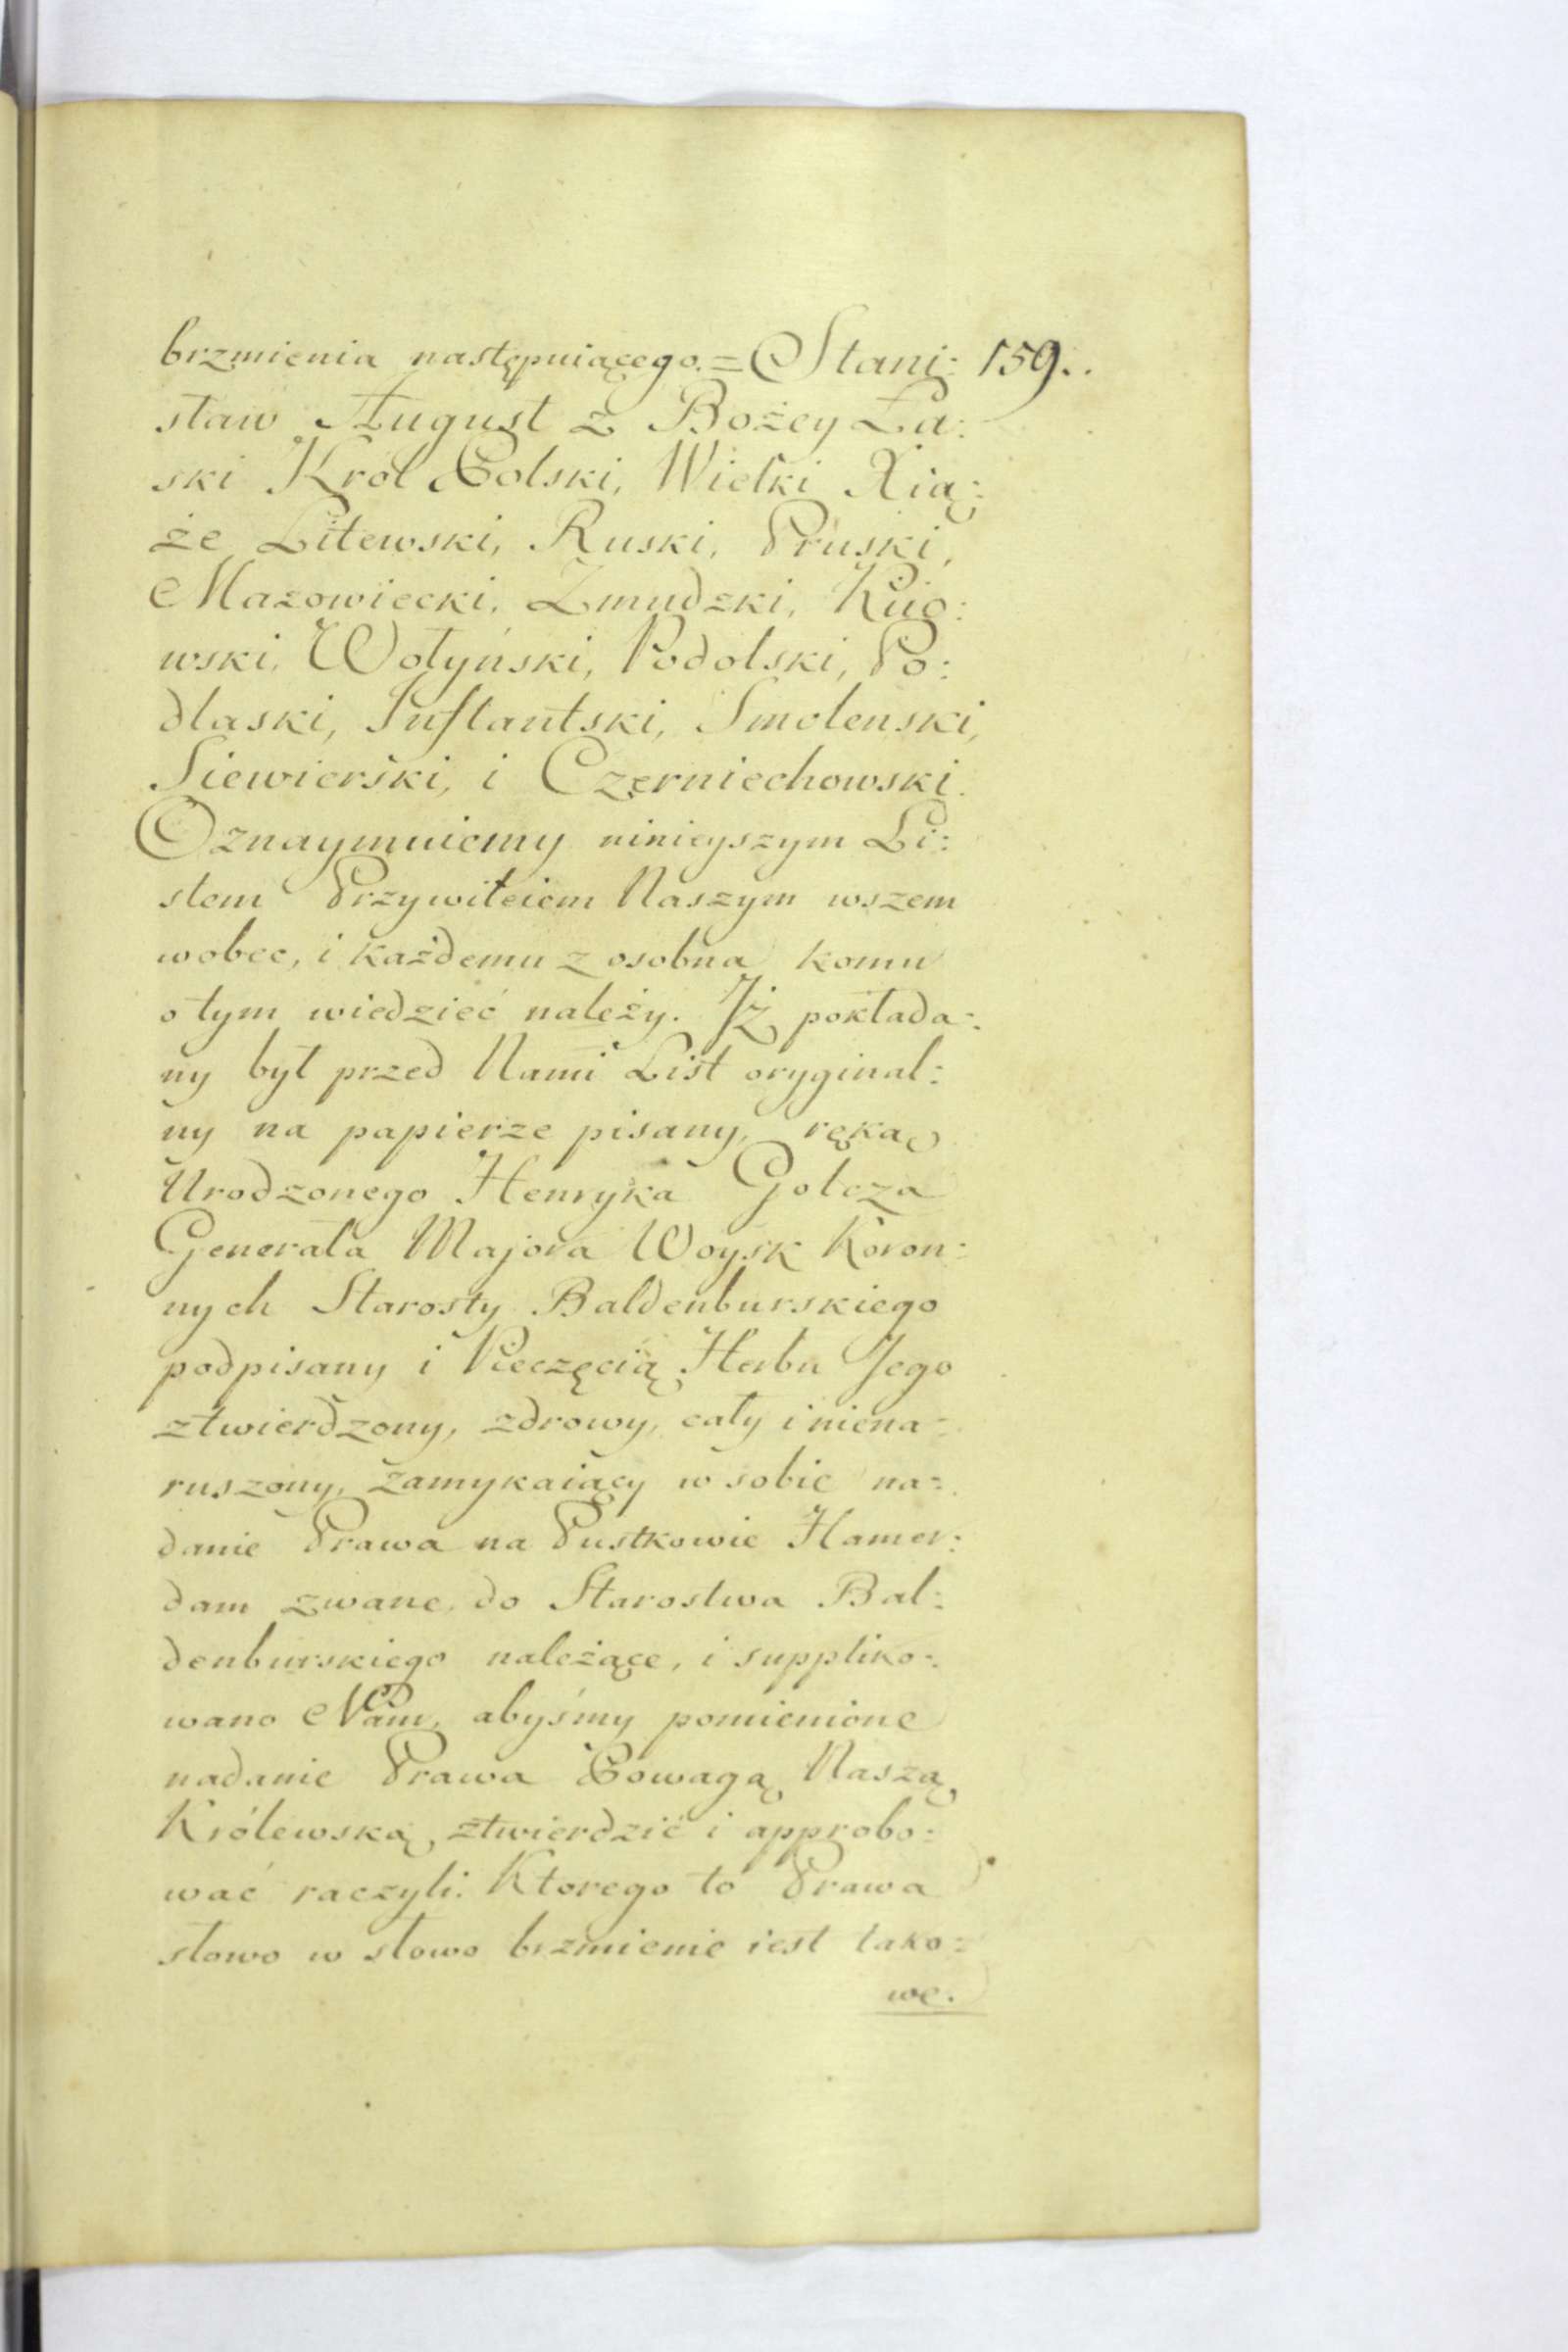 brzmienia następuiącego. = Stani: 159..
sław August z Bożey Ła:
ski Krol Polski, Wielki Xią:
że Litewski, Ruski, Pruski,
Mazowiecki, Zmudzki, Kiio:
wski, Wołyński, Podolski, Po:
dlaski, Inflantski, Smolenski,
Siewierski, i Czerniechowski.
Oznaymuiemy ninieyszym Li:
stem Przywileiem Naszym wszem
wobec, i każdemu z osobna komu
o tym wiedzieć należy. Iż pokłada:
ny był przed Nami List oryginal:
ny na papierze pisany, ręką
Urodzonego Henryka Golcza
Generała Majora Woysk Koron:
nych Starosty Baldenburskiego
podpisany i Pieczęcią Herbu Jego
ztwierdzony, zdrowy, cały i niena:
ruszony, zamykaiący w sobie na:
danie Prawa na Pustkowie Hamer:
dam zwane, do Starostwa Bal:
denburskiego należące, i suppliko:
wano Nam, abyśmy pomienione
nadanie Prawa Powagą Naszą
Królewską ztwierdzić i approbo:
wać raczyli. Ktorego to Prawa
słowo w słowo brzmienie iest tako:
we.